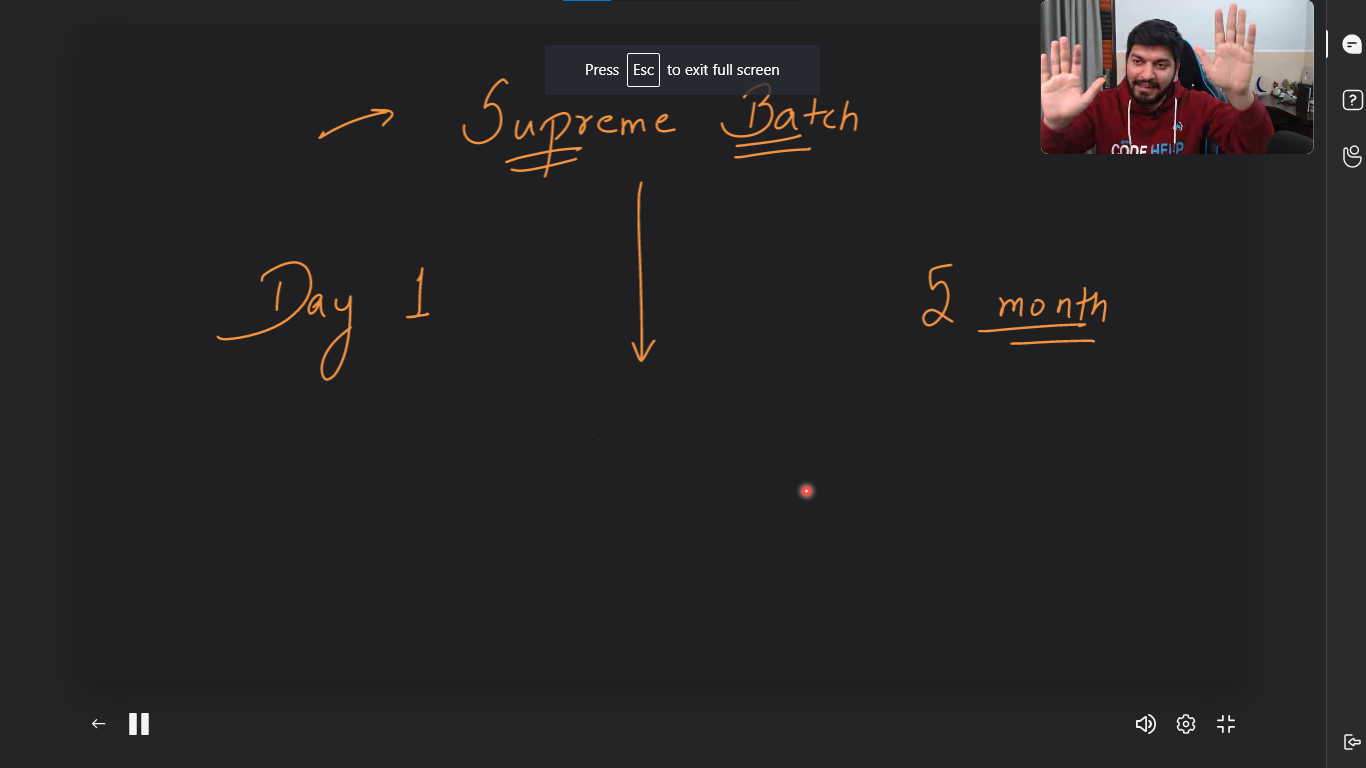 Press Esc to exit full screen
→ Supreme Batch
Day 1
5 month
CODE HELP